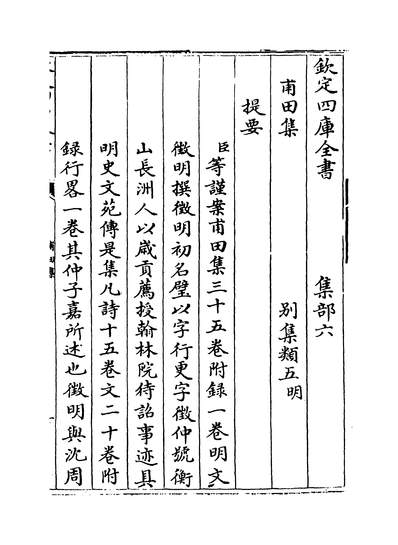 欽定四庫全書 集部六
甫田集 别集類五明
提要
臣等謹案甫田集三十五卷附録一卷明文
徵明撰徵明初名璧以字行更字徵仲號衡
山長洲人以嵗貢薦授翰林院待詔事迹具
明史文苑傳是集凡詩十五卷文二十卷附
録行畧一卷其仲子嘉所述也徵明與沈周